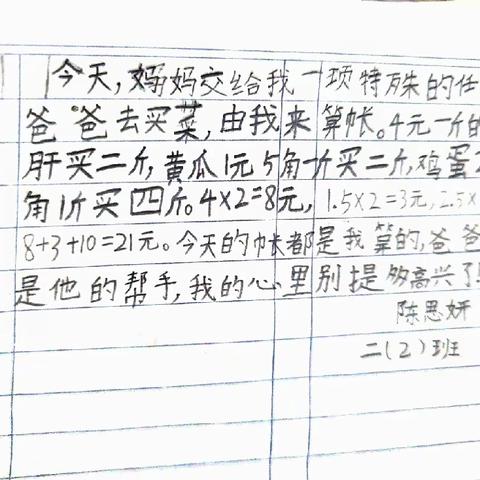 今天,妈妈交给我一项特殊的任
爸爸去买菜,由我来算帐。4元一斤的
肝买二斤,黄瓜1元5角一斤买二斤,鸡蛋2
角1斤买四斤。4×2=8元,1.5×2=3元,2.5×
8+3+10=21元。今天的帐都是我算的,爸爸
是他的帮手,我的心里别提够高兴了!
陈思妍
二(2)班